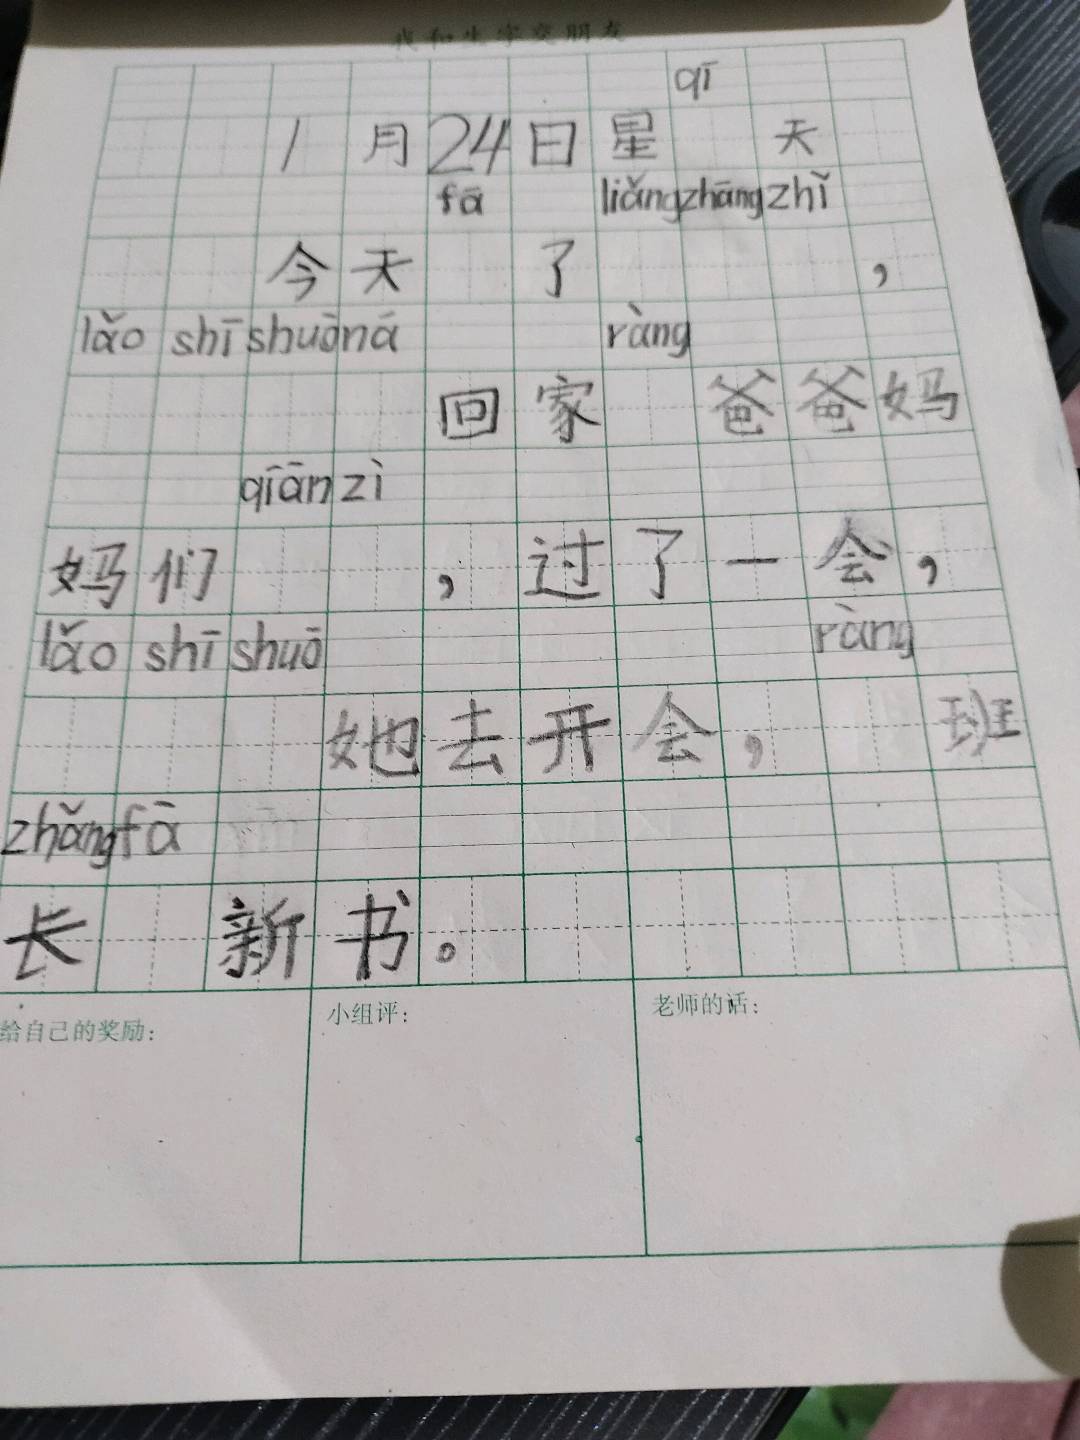 我和生字交朋友
qī
1月24日星 天
fā liǎngzhāngzhǐ
今天 了 ，
lǎo shī shuōná ràng
回家 爸爸妈
qiānzì
妈们 ，过了一会，
lǎo shī shuō ràng
她去开会， 班
zhǎngfā
长 新书。
给自己的奖励：
小组评：
老师的话：